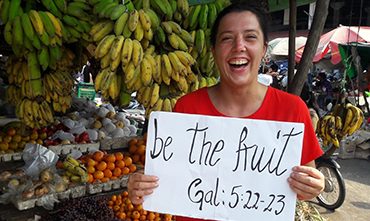 be the fruit
Gal: 5:22-23